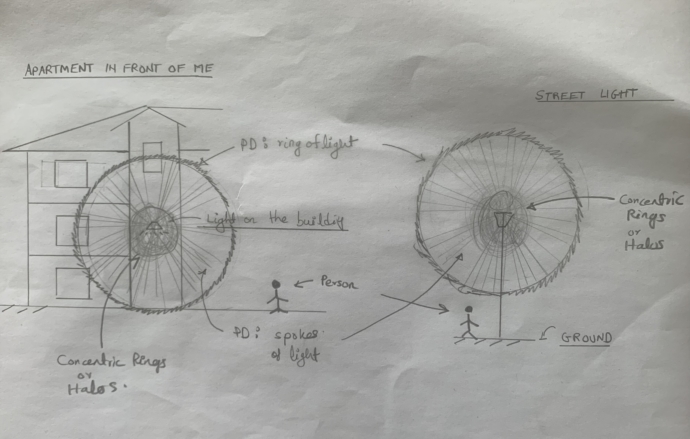 APARTMENT IN FRONT OF ME
STREET LIGHT
PD: ring of light
Light on the building
Concentric
Rings
or
Halos
Person
PD: spokes
of light
GROUND
Concentric Rings
or
Halos.